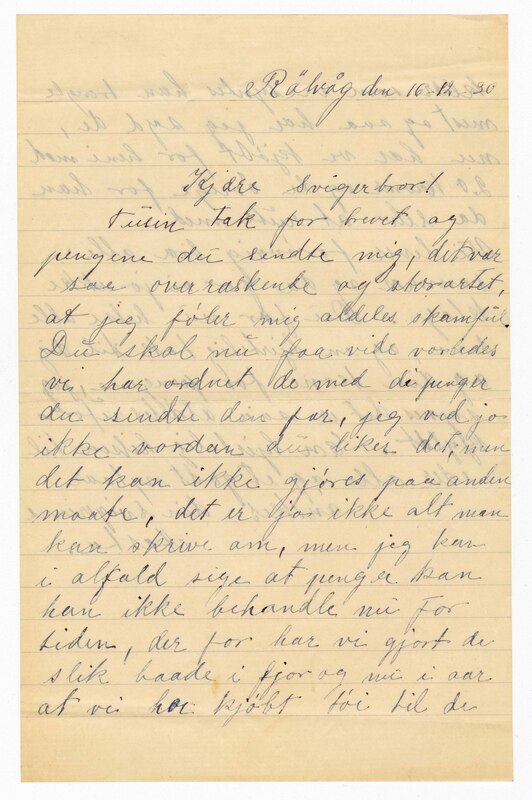 Rälvåg den 16-12 30
Kjære Svigerbror!
Tusin tak for brevet og
pengene du sendte mig, det var
saa overraskende og storartet,
at jeg føler mig aldeles skamful.
Du skal nu faa vide vorledes
vi har ordnet de med di penger
du sendte din far, jeg ved jo
ikke vordan du liker det, men
det kan ikke gjøres paa anden
maate, det er jo ikke alt man
kan skrive om, men jeg kan
i alfald sige at penger kan
han ikke behandle nu for
tiden, der for har vi gjort de
slik baade i fjor og nu i aar
at vi har kjøbt tøi til de